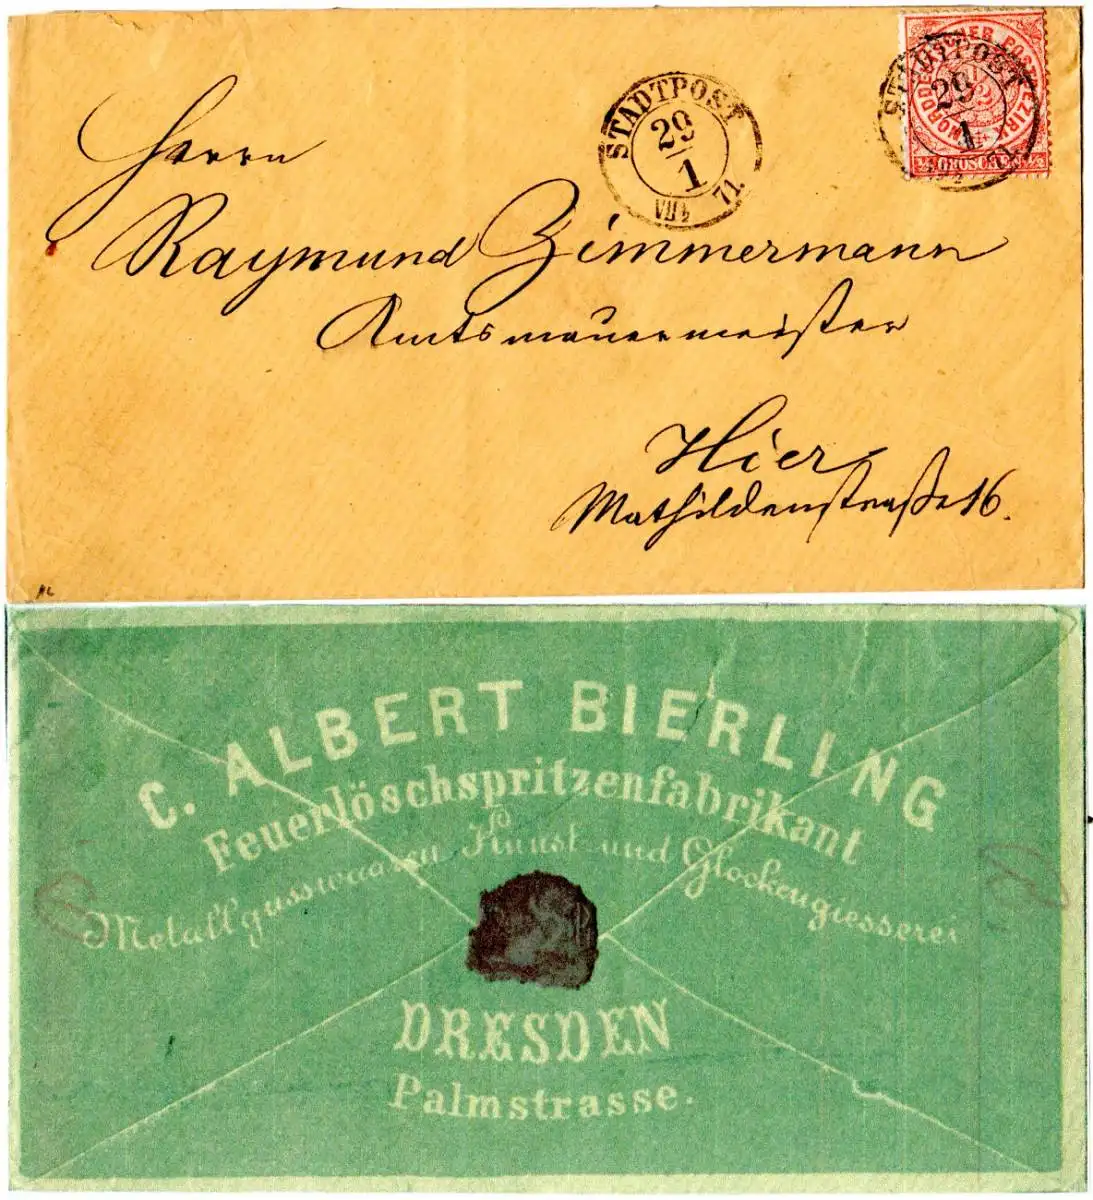 STADTPOST
29
1
VII½ 71.
STADTPOST
29
1
NORDDEUTSCHER POSTBEZIRK
1/2
½ GROSCHEN ½
Herrn
Raymund Zimmermann
Amtsmauermeister
Hier
Mathildenstraße 16.
C. ALBERT BIERLING
Feuerlöschspritzenfabrikant
Metallgusswaaren Kunst und Glockengiesserei
DRESDEN
Palmstrasse.